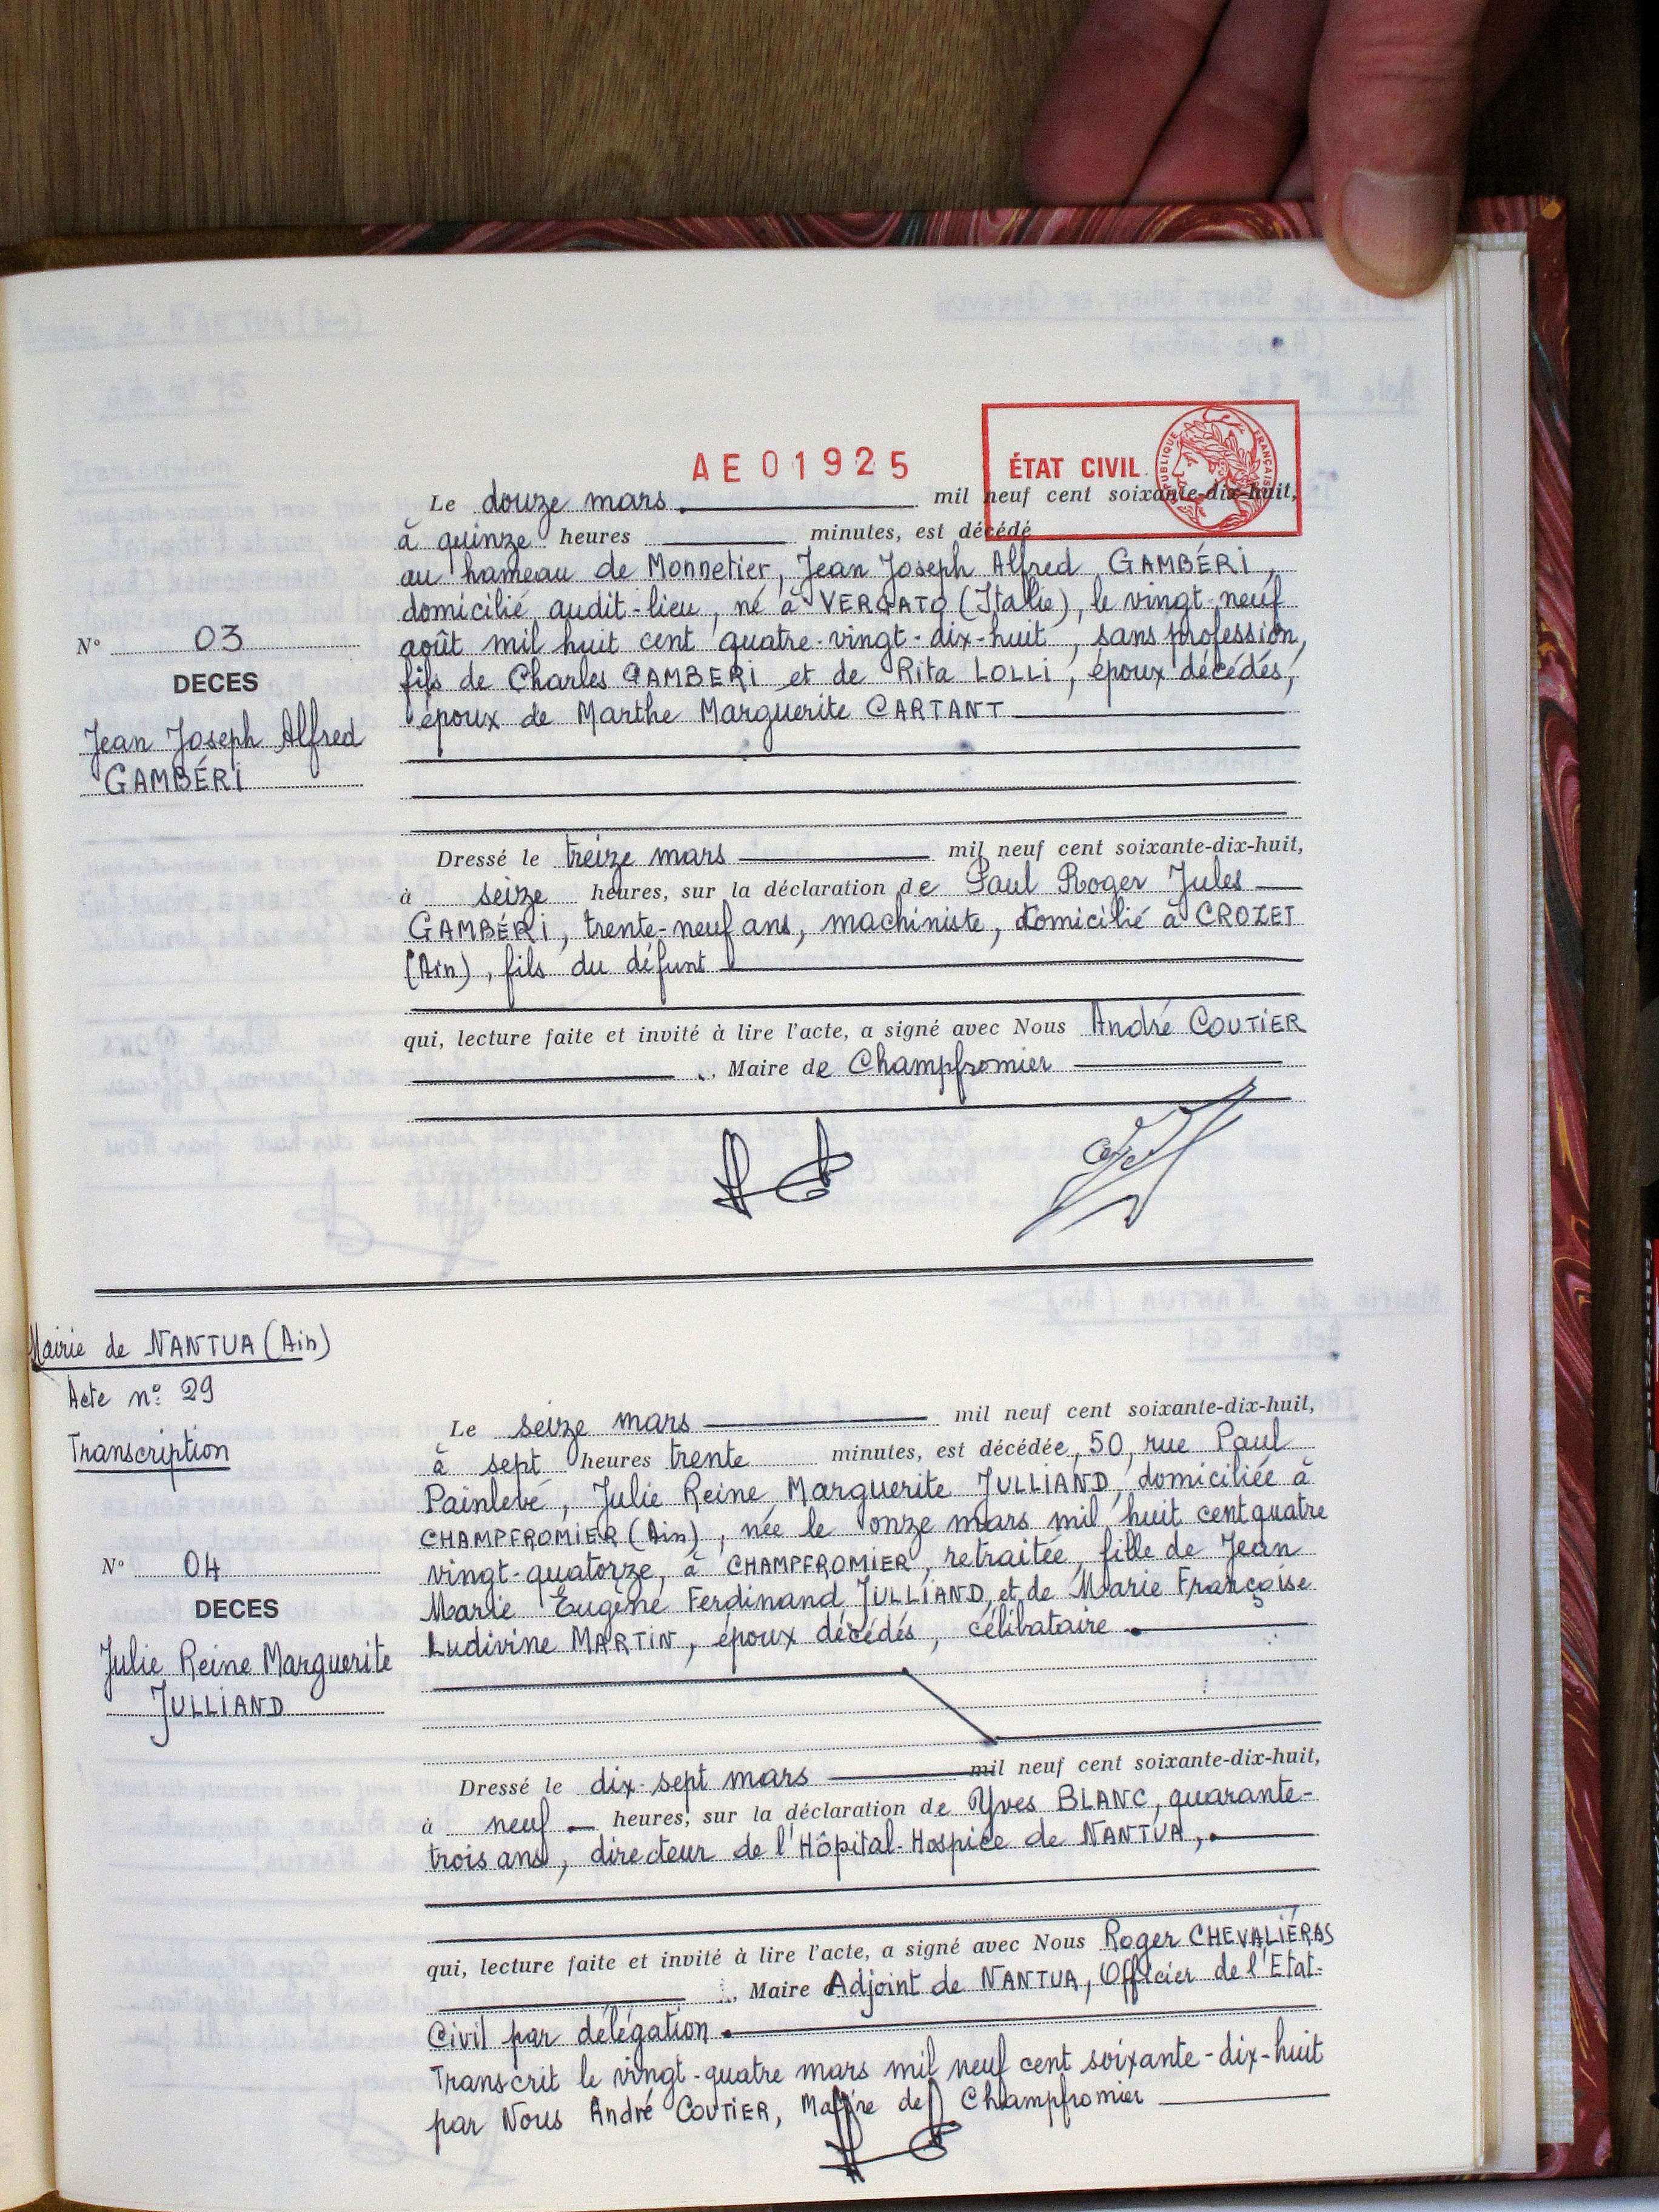 AE01925
ÉTAT CIVIL
RÉPUBLIQUE FRANÇAISE
Le douze mars mil neuf cent soixante-dix-huit,
à quinze heures minutes, est décédé
au hameau de Monnetier, Jean Joseph Alfred GAMBÉRI,
domicilié audit-lieu, né à VERGATO (Italie), le vingt-neuf
août mil huit cent quatre-vingt-dix-huit, sans profession,
fils de Charles GAMBERI et de Rita LOLLI, époux décédés,
époux de Marthe Marguerite CARTANT
N° 03
DECES
Jean Joseph Alfred
GAMBÉRI
Dressé le treize mars mil neuf cent soixante-dix-huit,
à seize heures, sur la déclaration de Paul Roger Jules
GAMBÉRI, trente-neuf ans, machiniste, domicilié à CROZET
(Ain), fils du défunt
qui, lecture faite et invité à lire l'acte, a signé avec Nous André COUTIER
, Maire de Champfromier
Mairie de NANTUA (Ain)
Acte n° 29
Transcription
N° 04
DECES
Julie Reine Marguerite
JULLIAND
Le seize mars mil neuf cent soixante-dix-huit,
à sept heures trente minutes, est décédée, 50, rue Paul
Painlevé, Julie Reine Marguerite JULLIAND, domiciliée à
CHAMPFROMIER (Ain), née le onze mars mil huit cent quatre
vingt-quatorze, à CHAMPFROMIER, retraitée, fille de Jean
Marie Eugène Ferdinand JULLIAND, et de Marie Françoise
Ludivine MARTIN, époux décédés, célibataire.
Dressé le dix-sept mars mil neuf cent soixante-dix-huit,
à neuf heures, sur la déclaration de Yves BLANC, quarante-
trois ans, directeur de l'Hôpital-Hospice de NANTUA,
qui, lecture faite et invité à lire l'acte, a signé avec Nous Roger CHEVALIÉRAS
, Maire Adjoint de NANTUA, Officier de l'Etat-
Civil par délégation.
Transcrit le vingt-quatre mars mil neuf cent soixante-dix-huit
par Nous André COUTIER, Maire de Champfromier